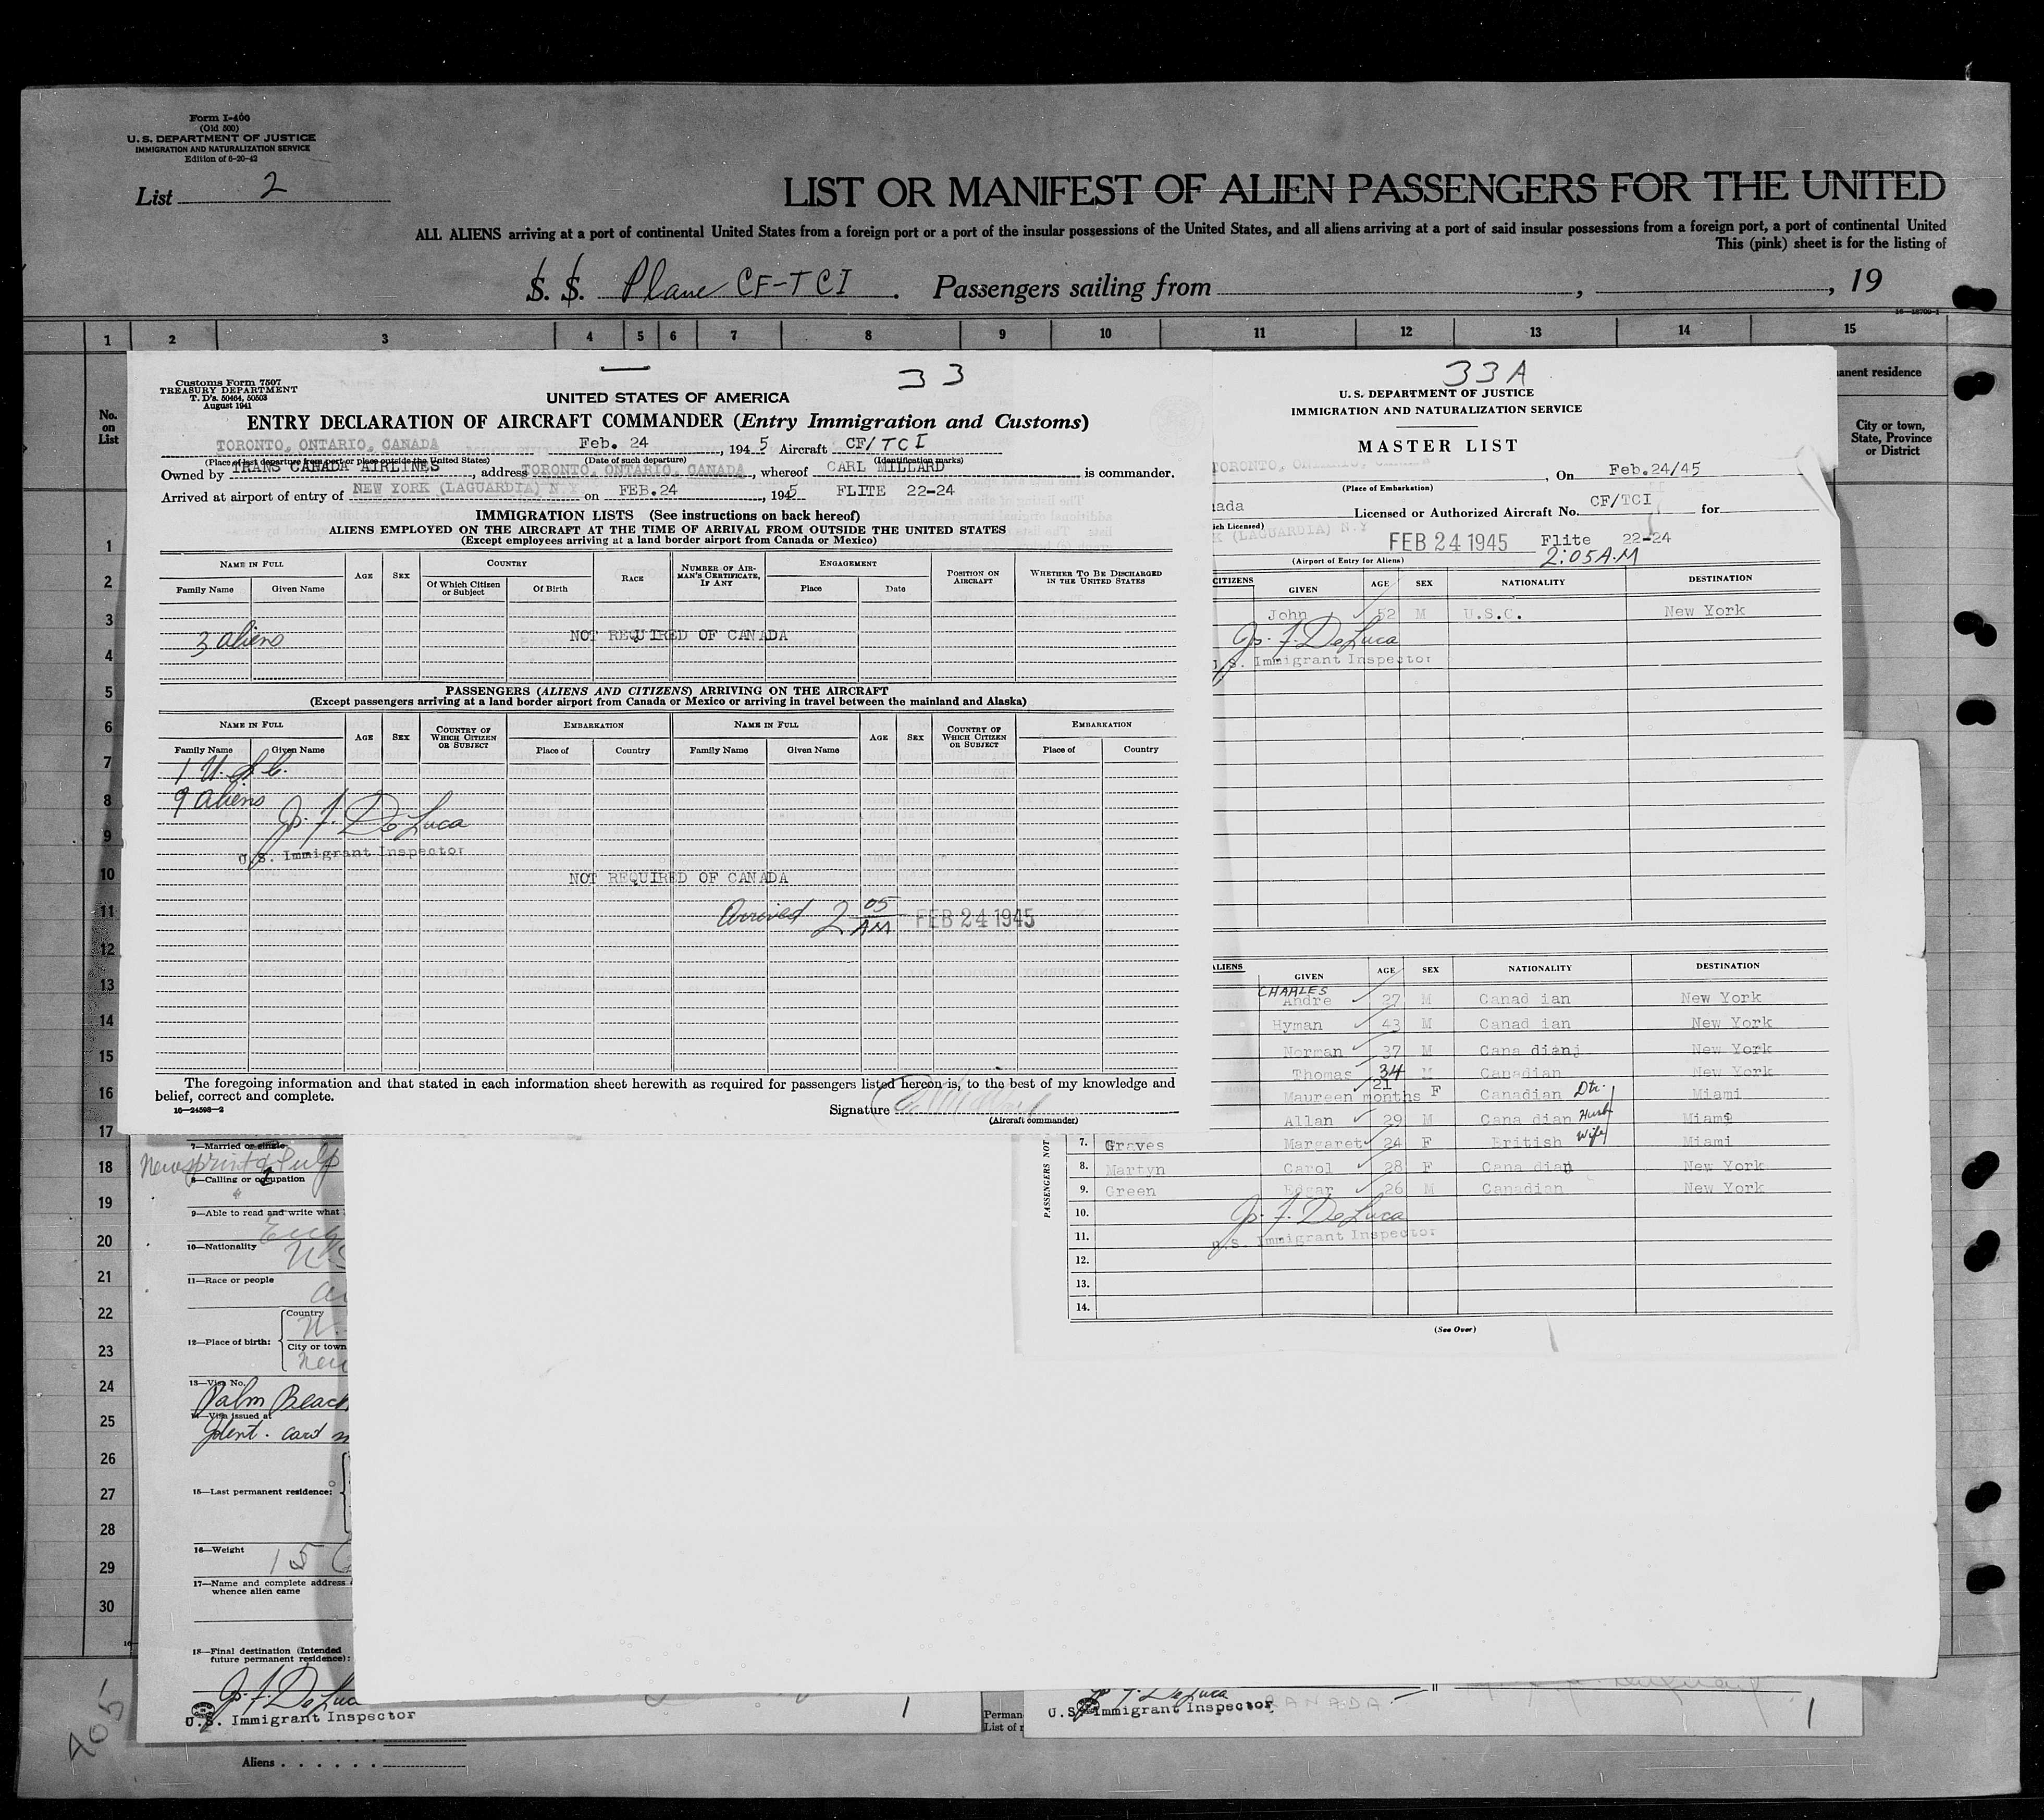 Form I-400
(Old 500)
U. S. DEPARTMENT OF JUSTICE
IMMIGRATION AND NATURALIZATION SERVICE
Edition of 6-20-42
List 2
LIST OR MANIFEST OF ALIEN PASSENGERS FOR THE UNITED
ALL ALIENS arriving at a port of continental United States from a foreign port or a port of the insular possessions of the United States, and all aliens arriving at a port of said insular possessions from a foreign port, a port of continental United
This (pink) sheet is for the listing of
S. S. Plane CF-TCI . Passengers sailing from , , 19
1 2 3 4 5 6 7 8 9 10 11 12 13 14 15
No. on List
anent residence
City or town, State, Province or District
1
2
3
4
5
6
7
8
9
10
11
12
13
14
15
16
17
18
19
20
21
22
23
24
25
26
27
28
29
30
33
Customs Form 7507
TREASURY DEPARTMENT
T. D's. 50464, 50503
August 1941
UNITED STATES OF AMERICA
ENTRY DECLARATION OF AIRCRAFT COMMANDER (Entry Immigration and Customs)
TORONTO, ONTARIO, CANADA Feb. 24, 1945 Aircraft CF/TCI
(Place of last departure from port or place outside the United States) (Date of such departure) (Identification marks)
Owned by TRANS CANADA AIRLINES, address TORONTO, ONTARIO, CANADA, whereof CARL MILLARD is commander.
Arrived at airport of entry of NEW YORK (LAGUARDIA) N.Y on FEB.24, 1945 FLITE 22-24
IMMIGRATION LISTS (See instructions on back hereof)
ALIENS EMPLOYED ON THE AIRCRAFT AT THE TIME OF ARRIVAL FROM OUTSIDE THE UNITED STATES
(Except employees arriving at a land border airport from Canada or Mexico)
NAME IN FULL AGE SEX COUNTRY RACE NUMBER OF AIRMAN'S CERTIFICATE, IF ANY ENGAGEMENT POSITION ON AIRCRAFT WHETHER TO BE DISCHARGED IN THE UNITED STATES
Family Name Given Name Of Which Citizen or Subject Of Birth Place Date
3 aliens NOT REQUIRED OF CANADA
PASSENGERS (ALIENS AND CITIZENS) ARRIVING ON THE AIRCRAFT
(Except passengers arriving at a land border airport from Canada or Mexico or arriving in travel between the mainland and Alaska)
NAME IN FULL AGE SEX COUNTRY OF WHICH CITIZEN OR SUBJECT EMBARKATION NAME IN FULL AGE SEX COUNTRY OF WHICH CITIZEN OR SUBJECT EMBARKATION
Family Name Given Name Place of Country Family Name Given Name Place of Country
1 U.S.C.
9 aliens
Jos. F. DeLuca
U.S. Immigrant Inspector
NOT REQUIRED OF CANADA
Arrived 2 05 AM FEB 24 1945
The foregoing information and that stated in each information sheet herewith as required for passengers listed hereon is, to the best of my knowledge and
belief, correct and complete.
16-24598-2
Signature
(Aircraft commander)
33A
U. S. DEPARTMENT OF JUSTICE
IMMIGRATION AND NATURALIZATION SERVICE
MASTER LIST
TORONTO, , On Feb.24/45
(Place of Embarkation)
ada Licensed or Authorized Aircraft No. CF/TCI for
ich Licensed)
K (LAGUARDIA) N.Y FEB 24 1945 Flite 22-24
(Airport of Entry for Aliens) 2:05 A.M
CITIZENS GIVEN AGE SEX NATIONALITY DESTINATION
John 52 M U.S.C. New York
Jos. F. DeLuca
U.S. Immigrant Inspector
ALIENS GIVEN AGE SEX NATIONALITY DESTINATION
CHARLES
Andre 27 M Canad ian New York
Hyman 43 M Canad ian New York
Norman 37 M Cana dianj New York
Thomas 34 M Canadian New York
Maureen 21 months F Canadian Dtr. Miami
Allan 29 M Cana dian Husb Miami
PASSENGERS NOT
7. Graves Margaret 24 F British Wife Miami
8. Martyn Carol 28 F Cana dian New York
9. Green Edgar 26 M Canadian New York
10.
Jos. F. DeLuca
11.
U.S. Immigrant Inspector
12.
13.
14.
(See Over)
7—Married or single
Newsprint & Pulp
8—Calling or occupation
9—Able to read and write what
10—Nationality
11—Race or people
12—Place of birth:
Country
City or town
New
13—Visa No.
Palm Beach
14—Visa issued at
Ident. card
15—Last permanent residence:
16—Weight 15
17—Name and complete address
whence alien came
18—Final destination (Intended
future permanent residence):
Jos. F. DeLuca
U.S. Immigrant Inspector 1
Perman
List of r
Jos. F. DeLuca
U.S. Immigrant Inspector CANADA 1
Aliens
405